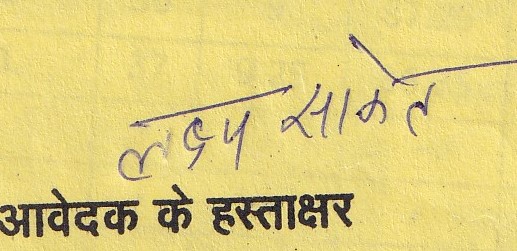 लक्ष्य साकेत
आवेदक के हस्ताक्षर